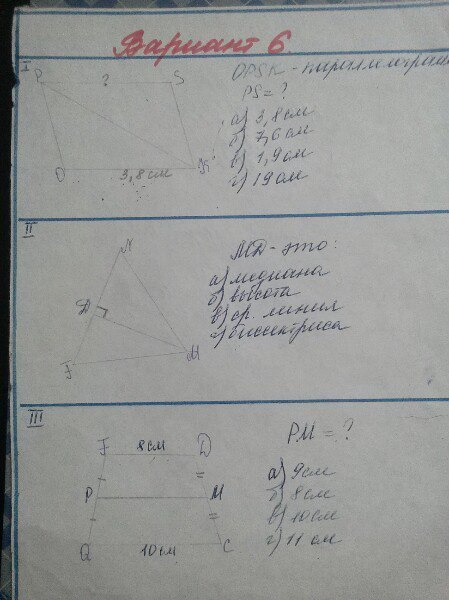 Вариант 6
I
P ? S
OPSK - параллелограмм
PS = ?
а) 3,8 см
б) 7,6 см
в) 1,9 см
г) 19 см
O 3,8 см K
II
N
MD - это:
а) медиана
б) высота
в) ср. линия
г) биссектриса
D
F M
III
F 8 см D
PM = ?
а) 9 см
б) 8 см
в) 10 см
г) 11 см
P M
Q 10 см C